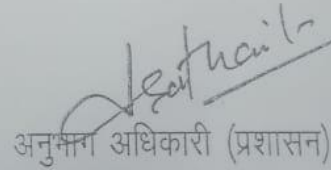 अनुभाग अधिकारी (प्रशासन)